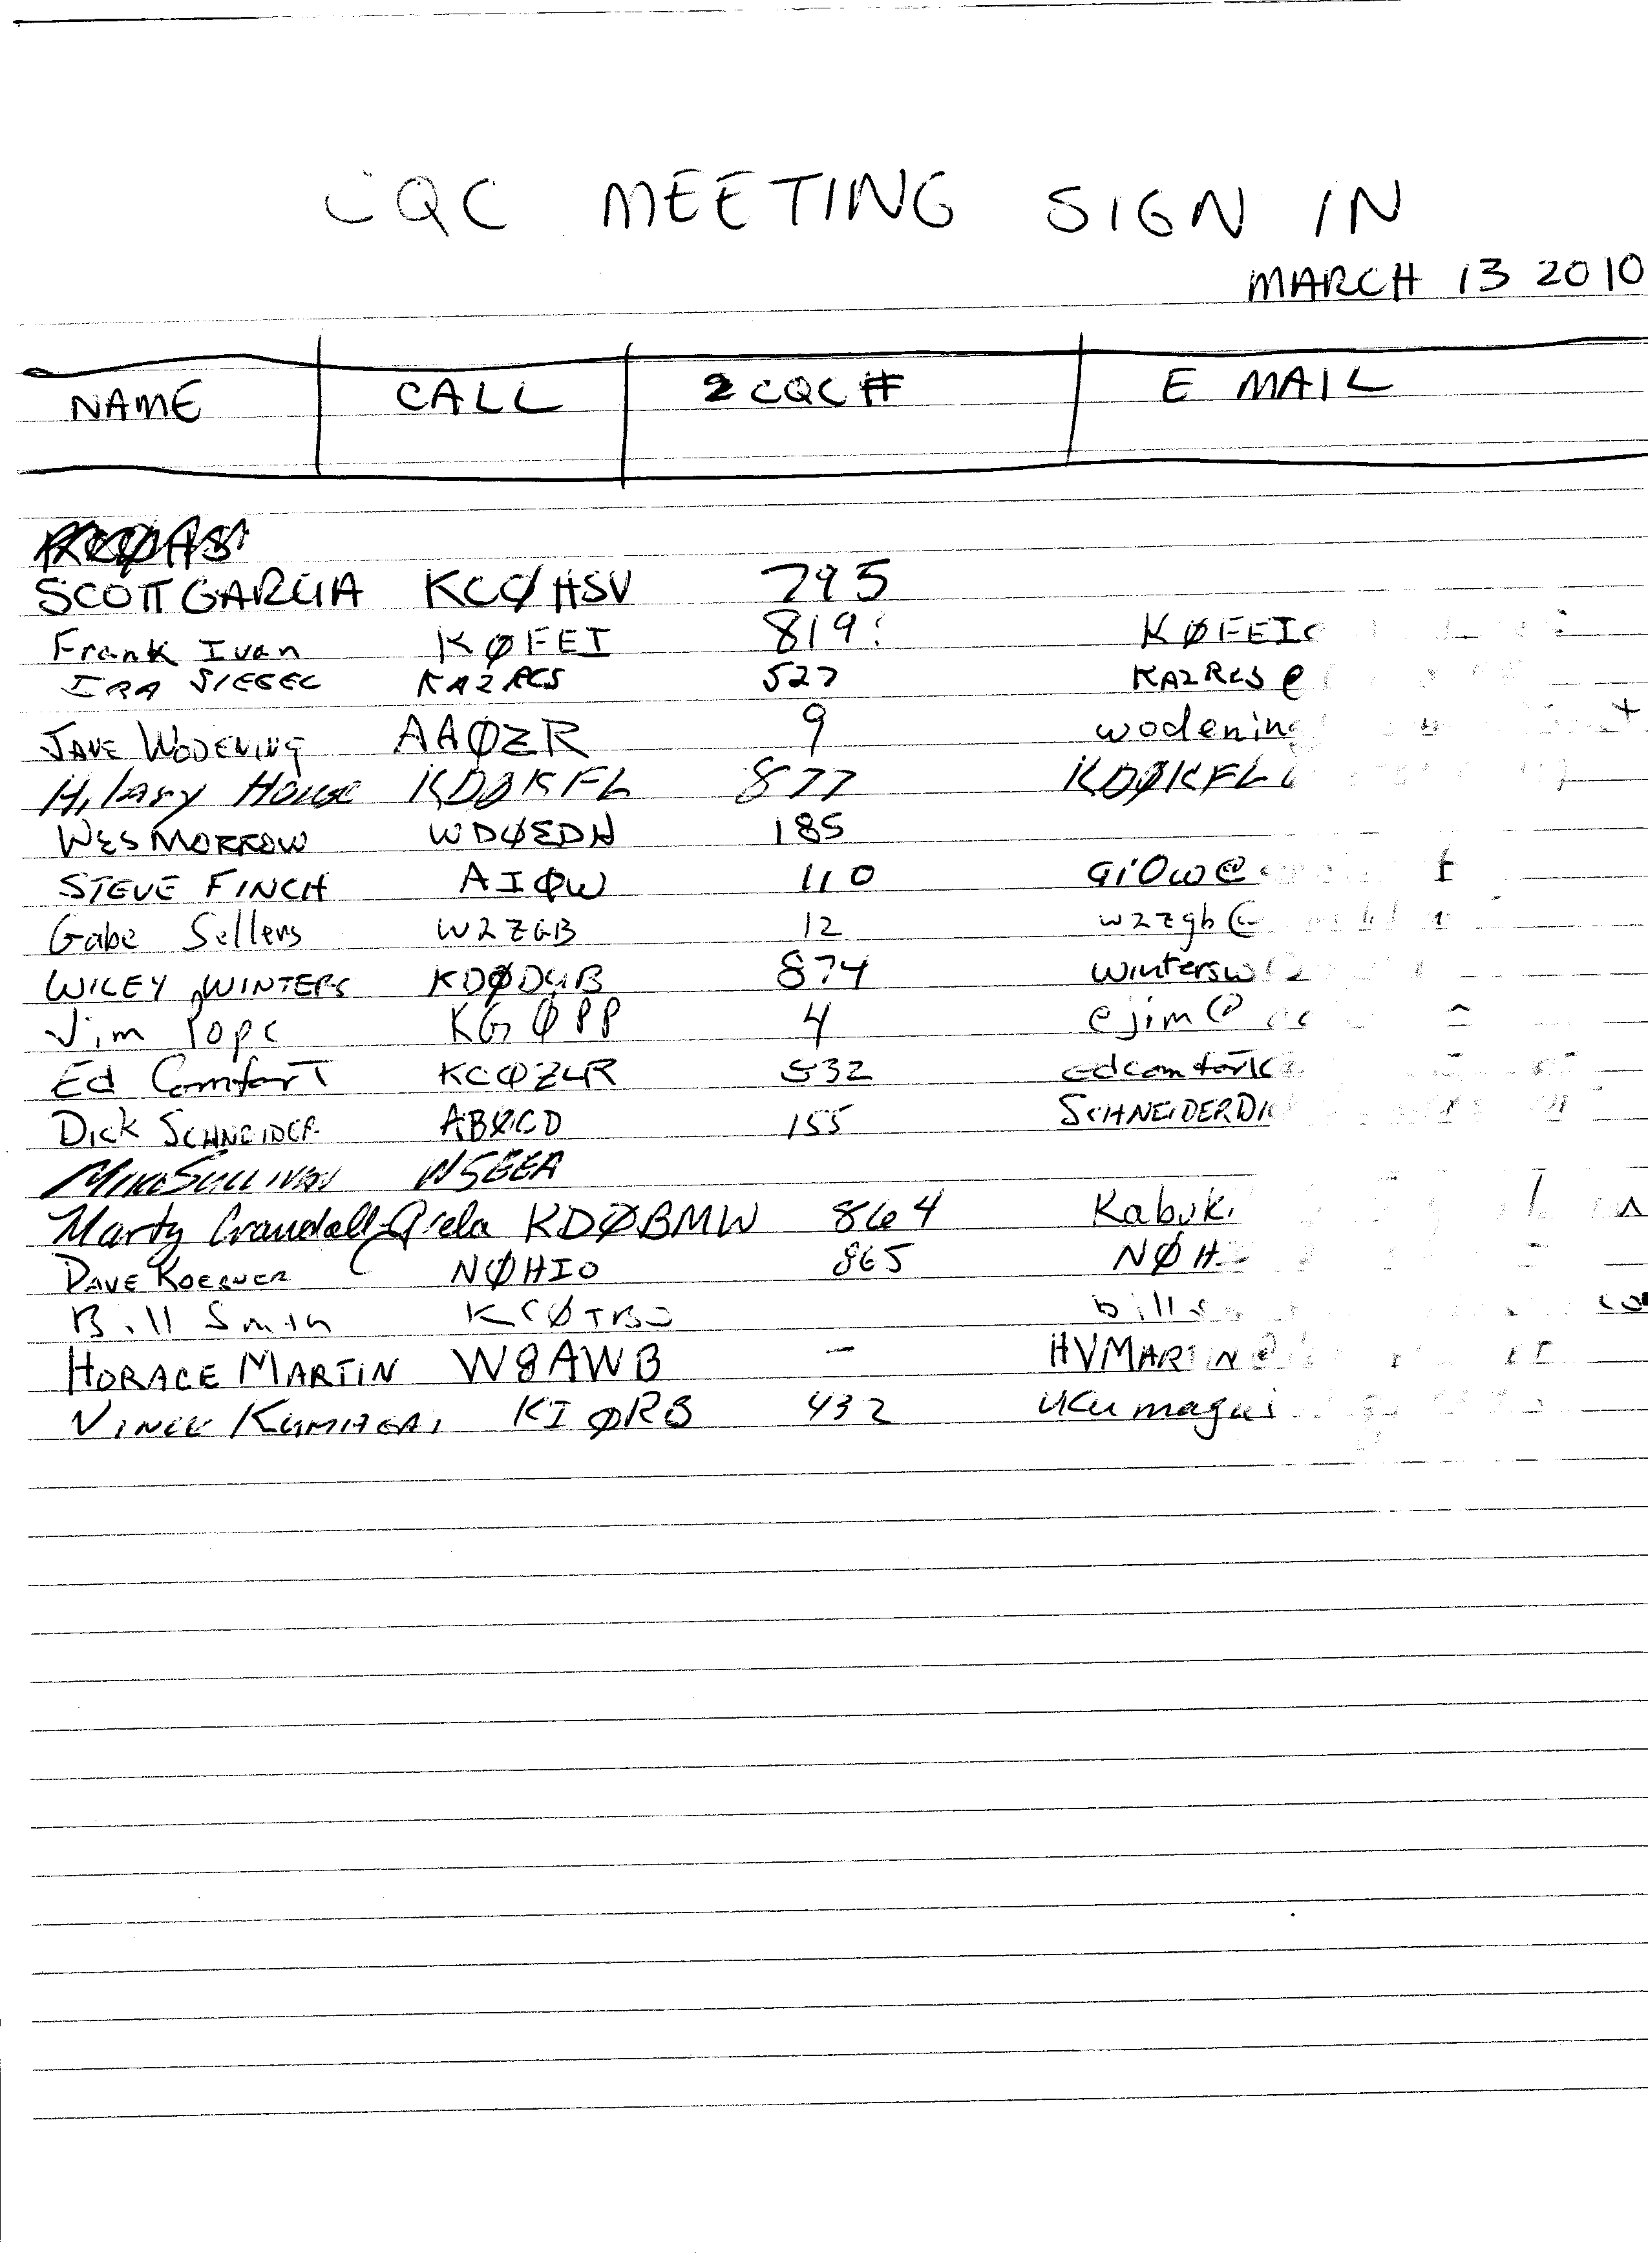 CQC MEETING SIGN IN
MARCH 13 2010
NAME CALL CQC # E MAIL
SCOTT GARCIA KCØHSV 795
Frank Ivan KØFEI 819? KØFEI
IRA SIEGEL KA2RCS 527 KA2RCS@
WODENING AAØZR 9 wodening
Hilary House KDØKFL 877 KDØKFL
WES MORROW WDØEDH 185
STEVE FINCH AIØW 110 @
Gabe Sellers W2ZGB 12 w2zgb@
WILEY WINTERS 874 wintersw
Jim Pope KGØPP 4 ejim@
Ed Comfort KCØZLR 532 edcomfort
Dick SCHNEIDER ABØCD 155 SCHNEIDERDI
MIKE SULLIVAN
Marty KDØBMW 864 Kabuki
DAVE NØHIO 865 NØH
Bill Smith bill
HORACE MARTIN W8AWB - HVMARTIN@
VINCE KUMAGAI KIØRB 432 vKumagai